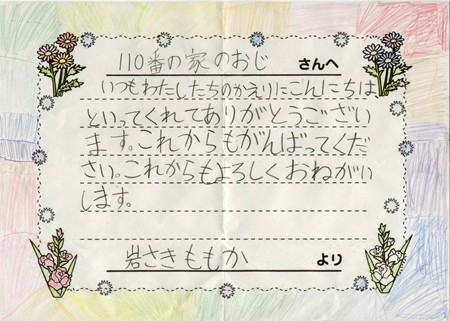 110番の家のおじ さんへ
いつもわたしたちのかえりにこんにちは
といってくれてありがとうござい
ます。これからもがんばってくだ
さい。これからもよろしくおねがい
します。
岩さきももか より